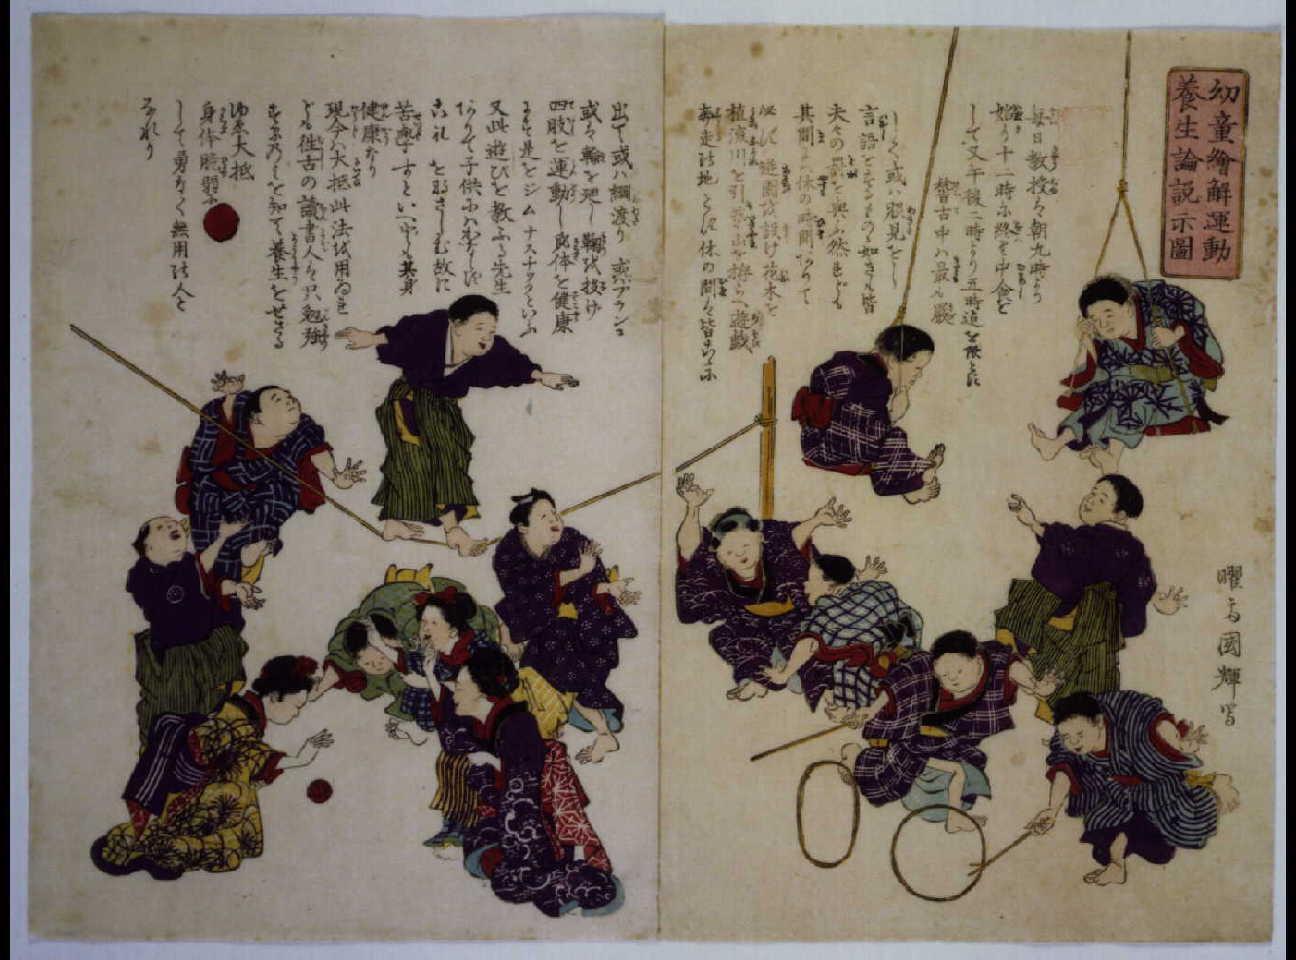 幼童繪解運動
養生論説示圖
毎日教授は朝九時より
始り十二時に終る中食を
して又午後二時より五時迄を限とす
稽古中は最も嚴
しく或ハ脇見をし
言語を交るもの如きも皆
夫々の罰を與ふ然れども
其間に休の時間ありて
必ず遊園を設け花木を
植流川を引き山を拵らへ遊戯
奔走の地とす休の間は皆こゝに
出て或ハ綱渡り或ハブランコ
或は輪を廻し鞠を投け
四肢を運動し身体を健康
にす是をジムナスチックといふ
又此遊びを教ふる先生
ありて子供にみせしめ
これを為さしむ故に
苦學すといへども其身
健康なり
現今ハ大抵此法を用ゐれ
ども往古の讀書人は只勉強
するのみを知て養生をせざる
ゆゑ大抵
身体脆弱に
して勇なく無用の人と
なれり
曜齋國輝冩